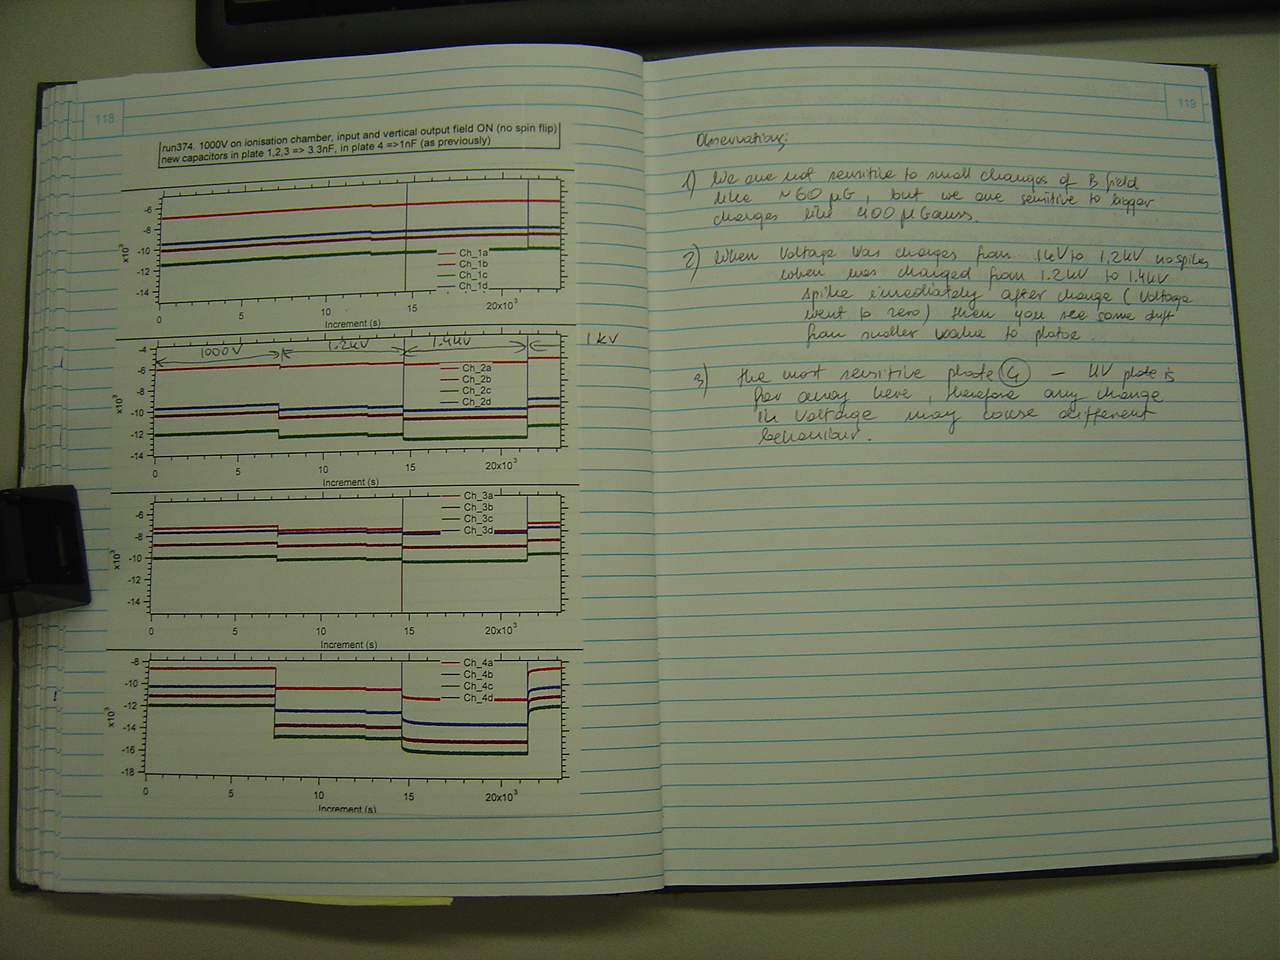 118
run374. 1000V on ionisation chamber, input and vertical output field ON (no spin flip)
new capacitors in plate 1,2,3 => 3.3nF, in plate 4 =>1nF (as previously)
x10³
-6
-8
-10
-12
-14
Ch_1a
Ch_1b
Ch_1c
Ch_1d
0
5
10
15
20x10³
Increment (s)
1000V
1.2kV
1.4kV
1kV
x10³
-4
-6
-8
-10
-12
-14
Ch_2a
Ch_2b
Ch_2c
Ch_2d
0
5
10
15
20x10³
Increment (s)
x10³
-6
-8
-10
-12
-14
Ch_3a
Ch_3b
Ch_3c
Ch_3d
0
5
10
15
20x10³
Increment (s)
x10³
-8
-10
-12
-14
-16
-18
Ch_4a
Ch_4b
Ch_4c
Ch_4d
0
5
10
15
20x10³
Increment (s)
119
Observations:
1) We are not sensitive to small changes of B field
like ~60 μG, but we are sensitive to bigger
changes like 400 μGauss.
2) When Voltage was changes from 1kV to 1.2kV no spikes
when was changed from 1.2kV to 1.4kV
spike imediately after change (Voltage
went to zero) then you see some drift
from smaller value to
3) the most sensitive plate 4 – HV plate is
far away here, therefore any change
in voltage may cause different
behaviour.